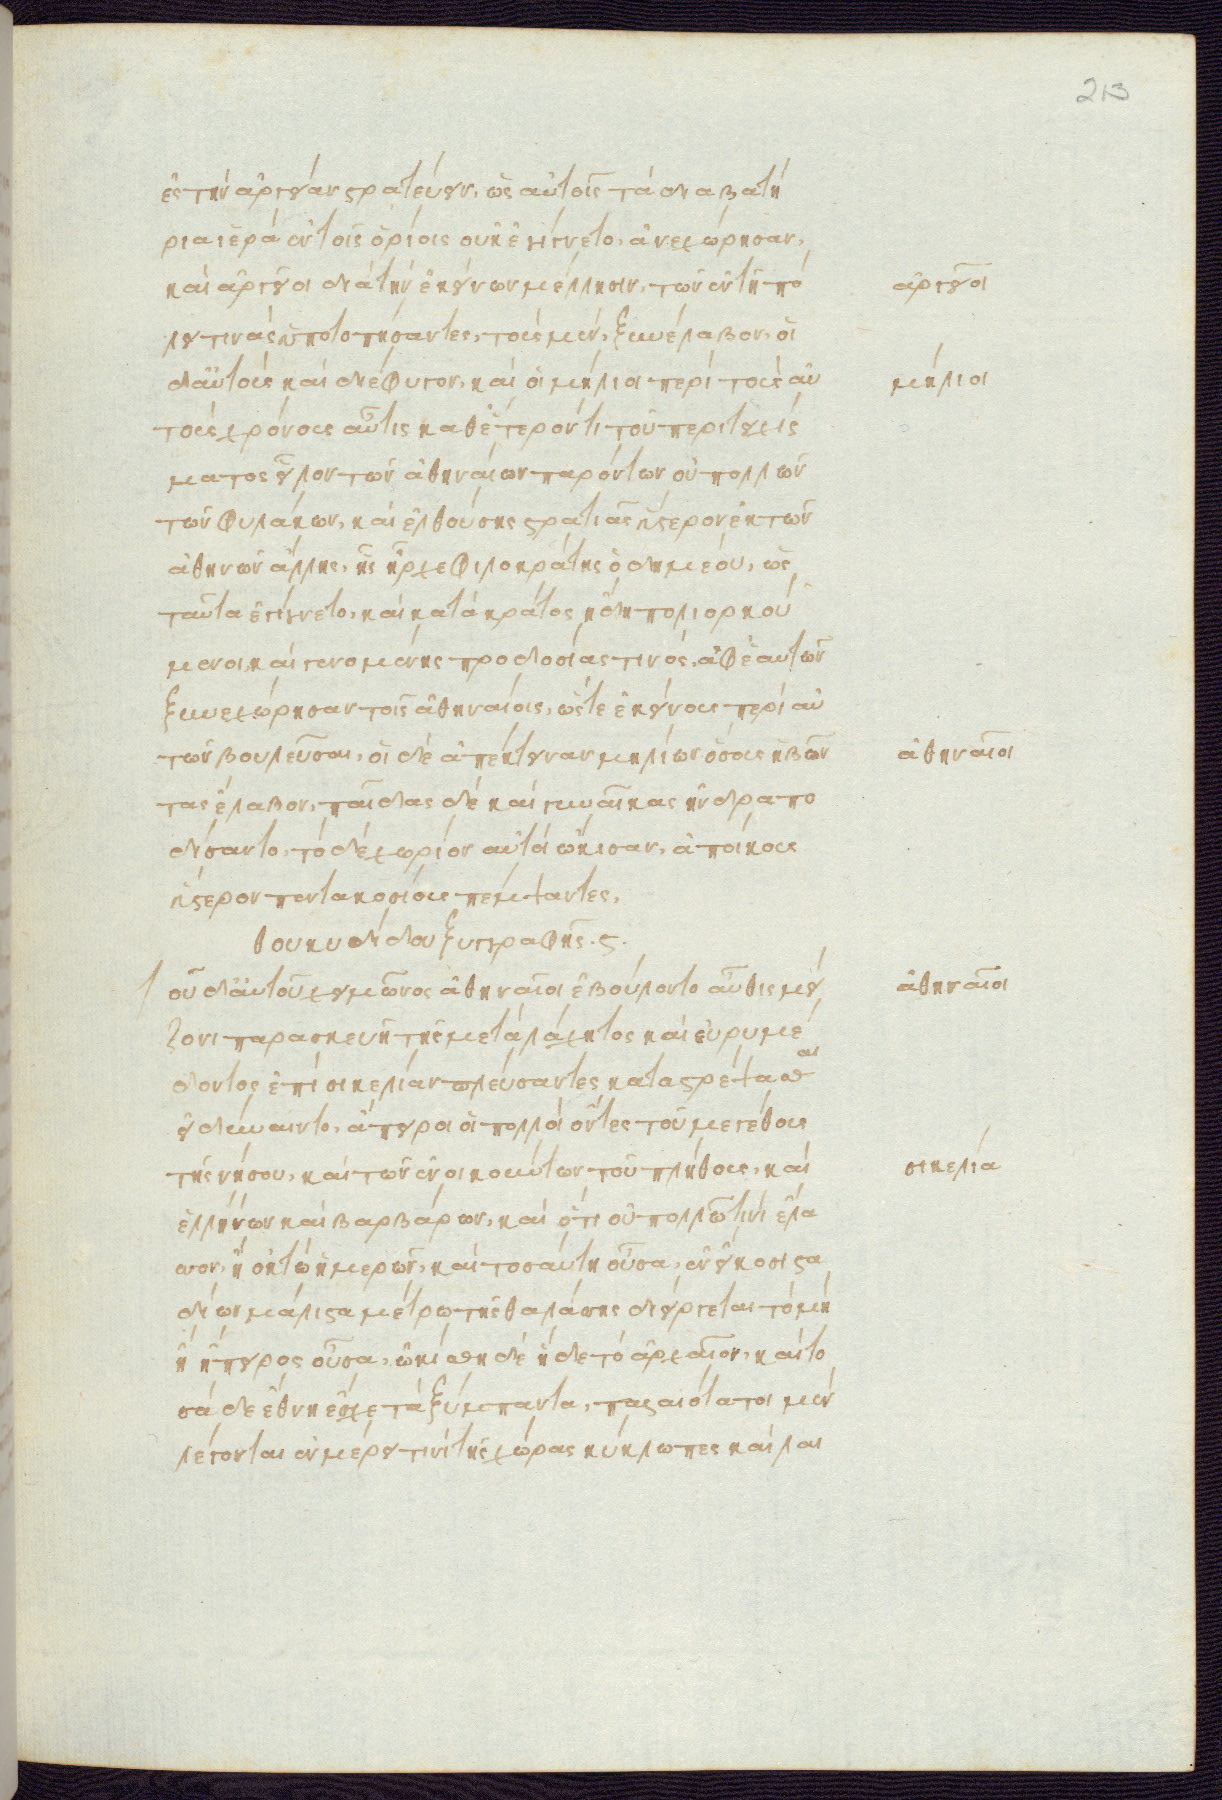 213
ἐς τὴν ἀργείαν στρατεύειν, ὡς αὐτοῖς τὰ διαβατή
ρια ἱερὰ ἐν τοῖς ὁρίοις οὐκ ἐγίγνετο, ἀνεχώρησαν,
καὶ ἀργεῖοι διὰ τὴν ἐκείνων μέλλησιν, τῶν ἐν τῆ πό
λει τινὰς ὑποτοπήσαντες, τοὺς μὲν, ξυνέλαβον, οἱ
δ᾽ αὐτοὺς καὶ διέφυγον, καὶ οἱ μήλιοι περὶ τοὺς αὐ
τοὺς χρόνους αὖτις καθ᾽ ἕτερόν τι τοῦ περιτειχίς
ματος εἷλον τῶν ἀθηναίων παρόντων οὐ πολλῶν
τῶν φυλάκων, καὶ ἐλθούσης στρατιᾶς ὕστερον ἐκ τῶν
ἀθηνῶν ἄλλης, ἧς ἦρχε φιλοκράτης ὁ δημέου, ὡς
ταῦτα ἐγίγνετο, καὶ κατὰ κράτος ἤδη πολιορκού
μενοι, καὶ γενομένης προδοσίας τινός, ἀφ᾽ ἑαυτῶν
ξυνεχώρησαν τοῖς ἀθηναίοις, ὥστε ἐκείνους περὶ αὐ
τῶν βουλεῦσαι, οἱ δὲ ἀπέκτειναν μηλίων ὅσους ἡβῶν
τας ἔλαβον, παῖδας δὲ καὶ γυναῖκας ἠνδραπό
δισαντο, τὸ δὲ χωρίον αὐτοὶ ᾤκισαν, ἀποίκους
ὕστερον πεντακοσίους πέμψαντες.
θουκυδίδου ξυγγραφῆς. ς.
Τοῦ δ᾽ αὐτοῦ χειμῶνος ἀθηναῖοι ἐβούλοντο αὖθις μεί
ζονι παρασκευῆ τῆς μετὰ λάχητος καὶ εὐρυμέ
δοντος ἐπὶ σικελίαν πλεύσαντες καταστρέψασθαι
εἰ δύναιντο, ἄπειροι οἱ πολλοὶ ὄντες τοῦ μεγέθους
τῆς νήσου, καὶ τῶν ἐνοικούντων τοῦ πλήθους, καὶ
ἑλλήνων καὶ βαρβάρων, καὶ ὅτι οὐ πολλῶ τινὶ ἔλα
σσον, ἢ ὀκτὼ ἡμερῶν, καὶ τοσαύτη οὖσα, ἐν εἴκοσι στα
δίων μάλιστα μέτρω τῆς θαλάσσης διείργεται τὸ μὴ
ἡ ἤπειρος οὖσα, ὠκίσθη δὲ ἥδε τὸ ἀρχαῖον, καὶ το
σάδε ἔθνη ἔσχε τὰ ξύμπαντα, παλαιότατοι μὲν
λέγονται ἐν μέρει τινὶ τῆς χώρας κύκλωπες καὶ λαι
ἀργεῖοι
μήλιοι
ἀθηναῖοι
ἀθηναῖοι
σικελία